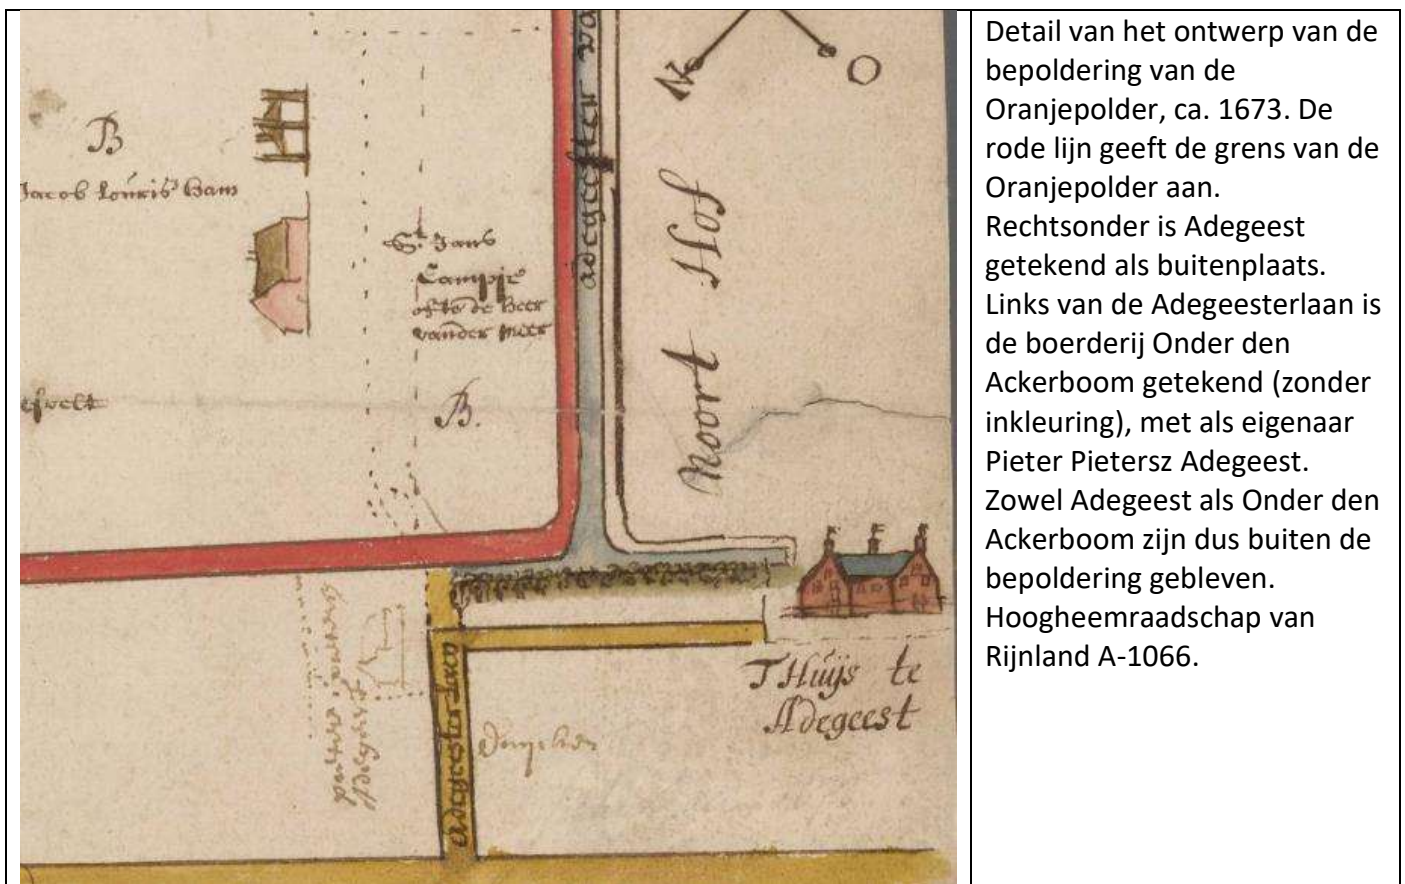 N
O
B
Jacob Louris Ham
adegeester va
Noort Hof
St. Jans
Campje
ofte de Heer
vander meer
esvelt
B.
pieter pieters
Adegeest
adegeester laen
THuijs te
Adegeest
Detail van het ontwerp van de
bepoldering van de
Oranjepolder, ca. 1673. De
rode lijn geeft de grens van de
Oranjepolder aan.
Rechtsonder is Adegeest
getekend als buitenplaats.
Links van de Adegeesterlaan is
de boerderij Onder den
Ackerboom getekend (zonder
inkleuring), met als eigenaar
Pieter Pietersz Adegeest.
Zowel Adegeest als Onder den
Ackerboom zijn dus buiten de
bepoldering gebleven.
Hoogheemraadschap van
Rijnland A-1066.